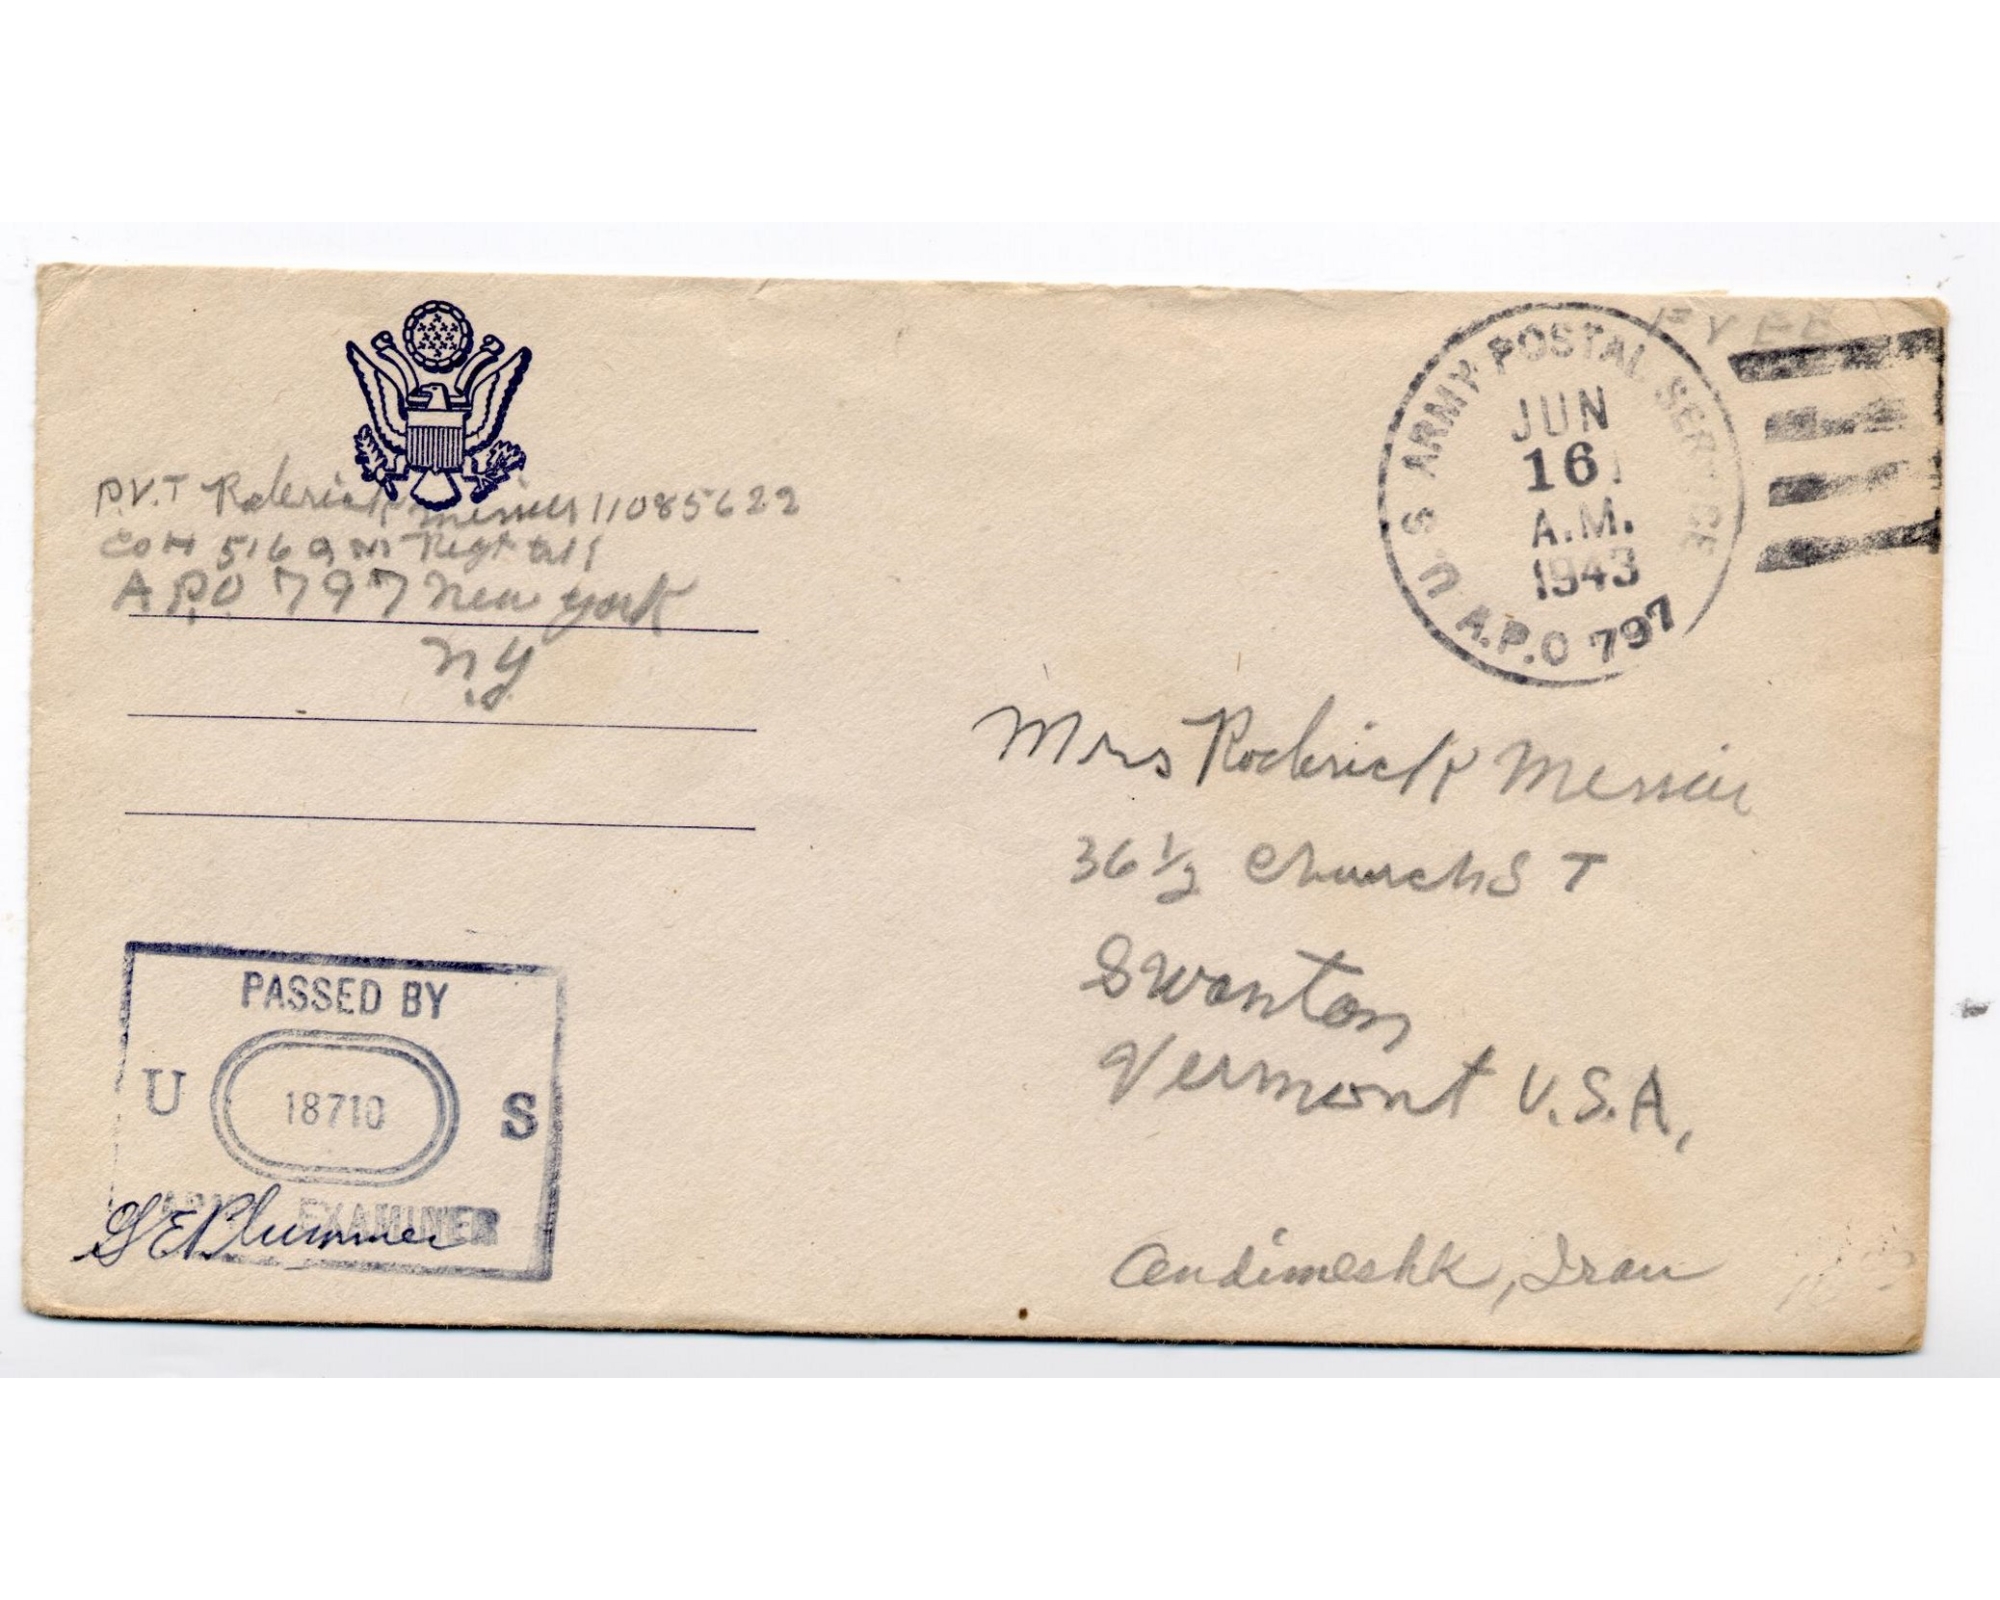 P.V.T Roderick Messier 11085622
Co H 516 QM Regt
A.P.O 797 New York
N.Y
FREE
U.S ARMY POSTAL SERVICE
JUN
16
A.M.
1943
A.P.O 797
Mrs Roderick Messier
36 1/2 Church S T
Swanton
Vermont U.S.A.
Andimeshk, Iran
PASSED BY
U 18710 S
ARMY EXAMINER
G E Plummer